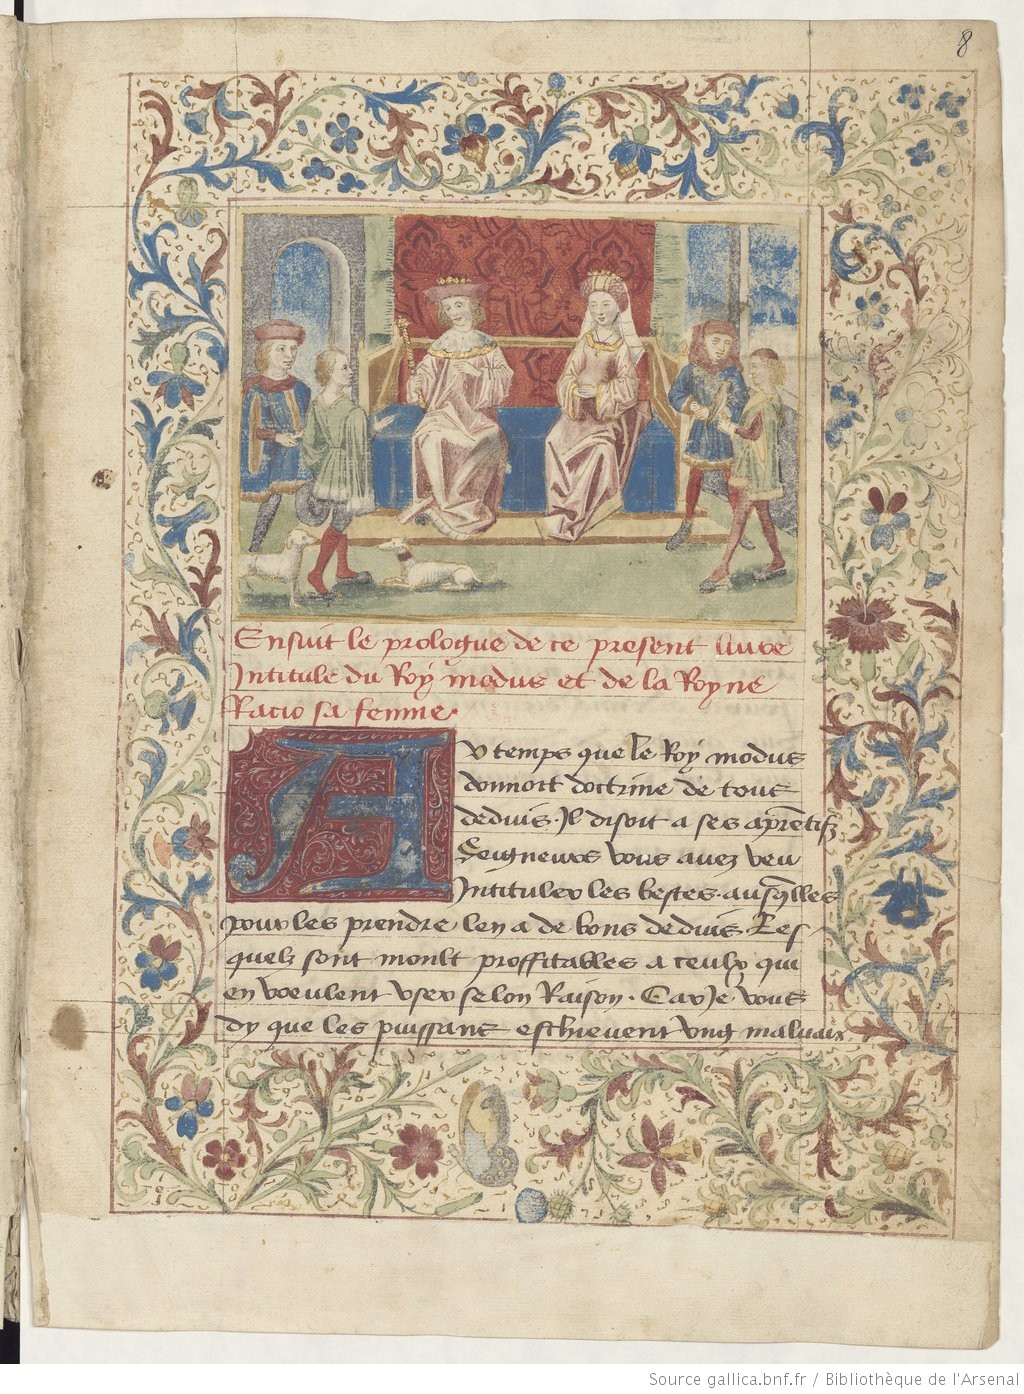 8
Ensuit le prologue de ce present livre
Intitule du Roy modus et de la Royne
Racio sa femme.
AU temps que le Roy modus
donnoit doctrine de tout
deduis. Il disoit a ses aprentifz
Seigneurs vous avez veu
Intituler les bestes. ausqlles
pour les prendre len a de bons deduis. Les
quelz sont moult proffitables a ceulx qui
en voeulent user selon Raison. Car Je vous
dy que les puissans eschievent ung malvaix
Source gallica.bnf.fr / Bibliothèque de l'Arsenal